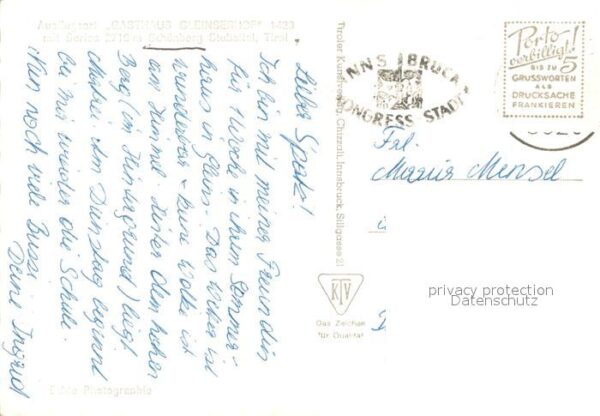 Ausflugsort "GASTHAUS GLEINSERHOF" 1420
mit Serles 2719 m Schönberg Stubaital, Tirol
Lieber Spatz!
Ich bin mit meiner Freundin
für 1 Woche in ihrem Sommer-
haus in Gleins. Das Wetter ist
wunderbar - keine Wolke ist
am Himmel. Hinter dem hohen
Berg (im Hintergrund) liegt
Matrei. Am Dienstag beginnt
bei mir wieder die Schule.
Nun noch viele Bussi
Deine Ingrid
Echte Photographie
Tiroler Kunstverlag Chizzali, Innsbruck, Sillgasse 21
KTV
Das Zeichen
für Qualität
INNSBRUCK
KONGRESS STADT
Porto
verbilligt!
BIS ZU 5
GRUSSWORTEN
ALS
DRUCKSACHE
FRANKIEREN
6020
Frl.
Maria Mensel
privacy protection
Datenschutz